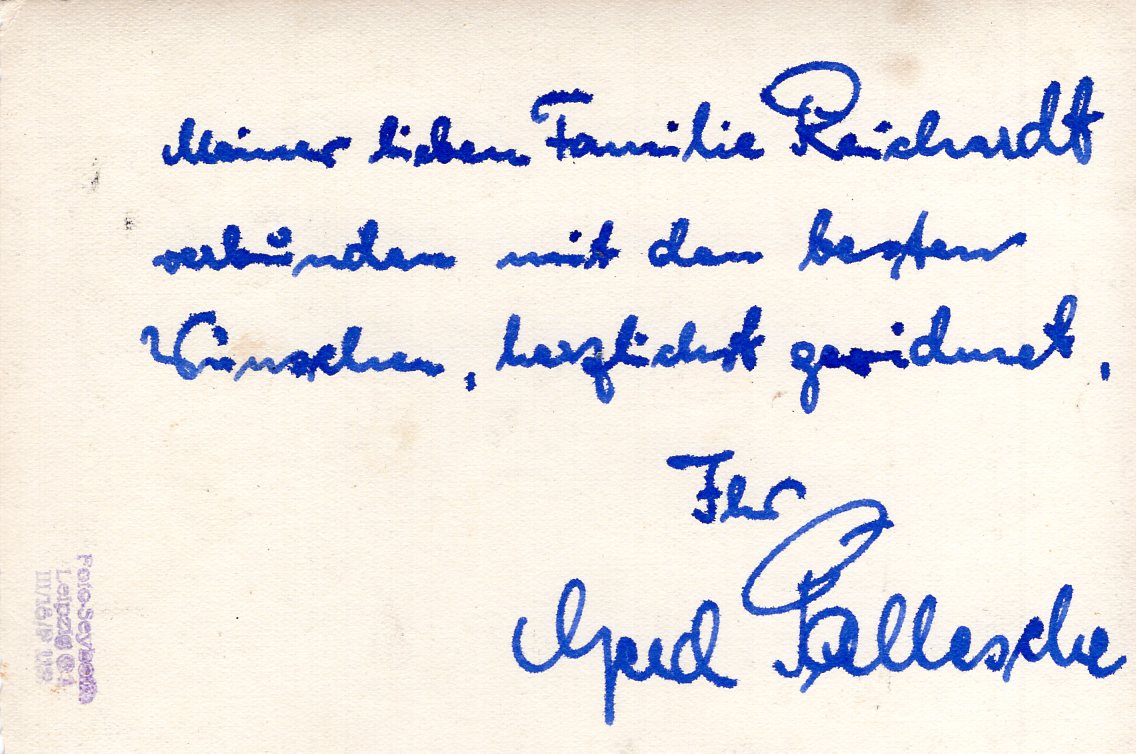 Meiner lieben Familie Reichardt
verbunden mit den besten
Wünschen, herzlichst gewidmet,
Ihr
Gerd Pallesche
Foto-Seybold
Leipzig O1
III/18/P